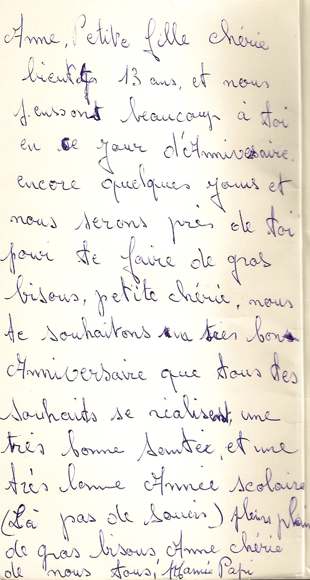 Anne, Petite fille chérie
bientôt 13 ans, et nous
pensons beaucoup à toi
en ce jour d'Anniversaire.
encore quelques jours et
nous serons près de toi
pour te faire de gros
bisous, petite chérie, nous
te souhaitons un très bon
Anniversaire que tous tes
souhaits se réalisent, une
très bonne santée, et une
très bonne Année scolaire
(Là pas de soucis) pleins plein
de gros bisous Anne chérie
de nous tous, Mamie Papi